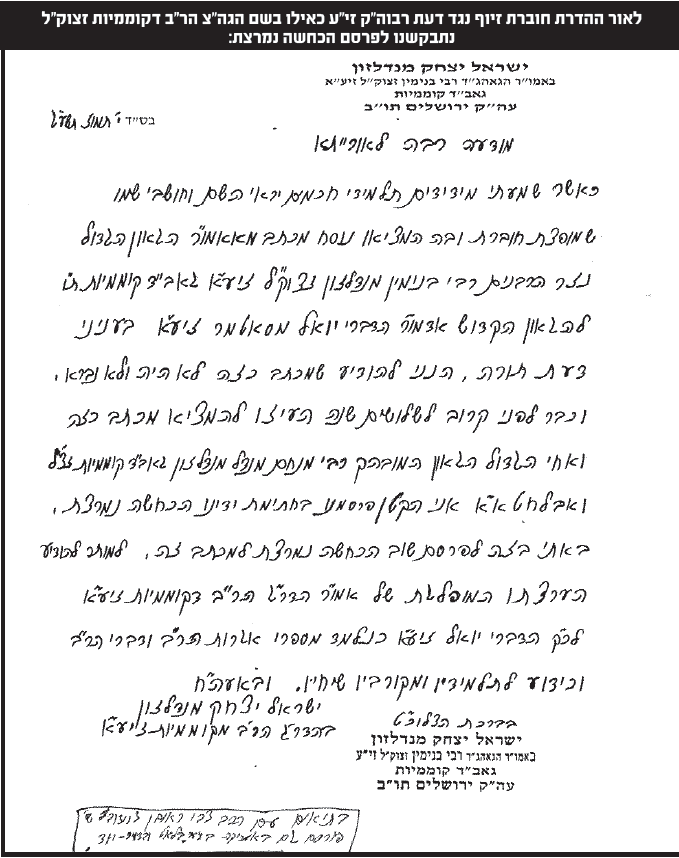 לאור ההדרת חוברת זיוף נגד דעת רבוה"ק זי"ע כאילו בשם הגה"צ הר"ב דקוממיות זצוק"ל
נתבקשנו לפרסם הכחשה נמרצת:
ישראל יצחק מנדלזון
באמו"ר הגאהג"ד רבי בנימין זצוק"ל זיע"א
גאב"ד קוממיות
עה"ק ירושלים תו"ב
בס"ד י' תמוז
מודעה רבה לאורייתא
כאשר שמעתי מידידים תלמידי חכמים יראי השם וחושבי שמו
שמופצת חוברת ובה המציאו נוסח מכתב מאאמו"ר הגאון הגדול
נזר הרבנים רבי בנימין מנדלזון זצוק"ל זיע"א גאב"ד קוממיות ת"ו
להגאון הקדוש אדמו"ר הדברי יואל מסאטמר זיע"א בעניני
דעת תורה, הנני להודיע שמכתב כזה לא היה ולא נברא,
וכבר לפני קרוב לשלושים שנה העיזו להמציא מכתב כזה
ואחי הגדול הגאון המובהק רבי מנחם מנדל מנדלזון גאב"ד קוממיות זצ"ל
ואבלחט"א אני הקטן פרסמנו בחתימת ידינו הכחשה נמרצת,
באתי בזה לפרסם שוב הכחשה נמרצת למכתב זה, למותר להודיע
הערצתו המופלגת של אמו"ר הדר"ג הר"ב דקוממיות זיע"א
לכ"ק הדברי יואל זיע"א כנלמד מספרי אגרות הר"ב ודברי הר"ב
וכידוע לתלמידיו ומקורביו שיחיו. ובאעה"ח
ישראל יצחק מנדלזון
בהדר"ג הר"ב מקוממיות זיע"א
בברכת
ישראל יצחק מנדלזון
באמו"ר הגאהג"ד רבי בנימין זצוק"ל זי"ע
גאב"ד קוממיות
עה"ק ירושלים תו"ב
הרב צבי